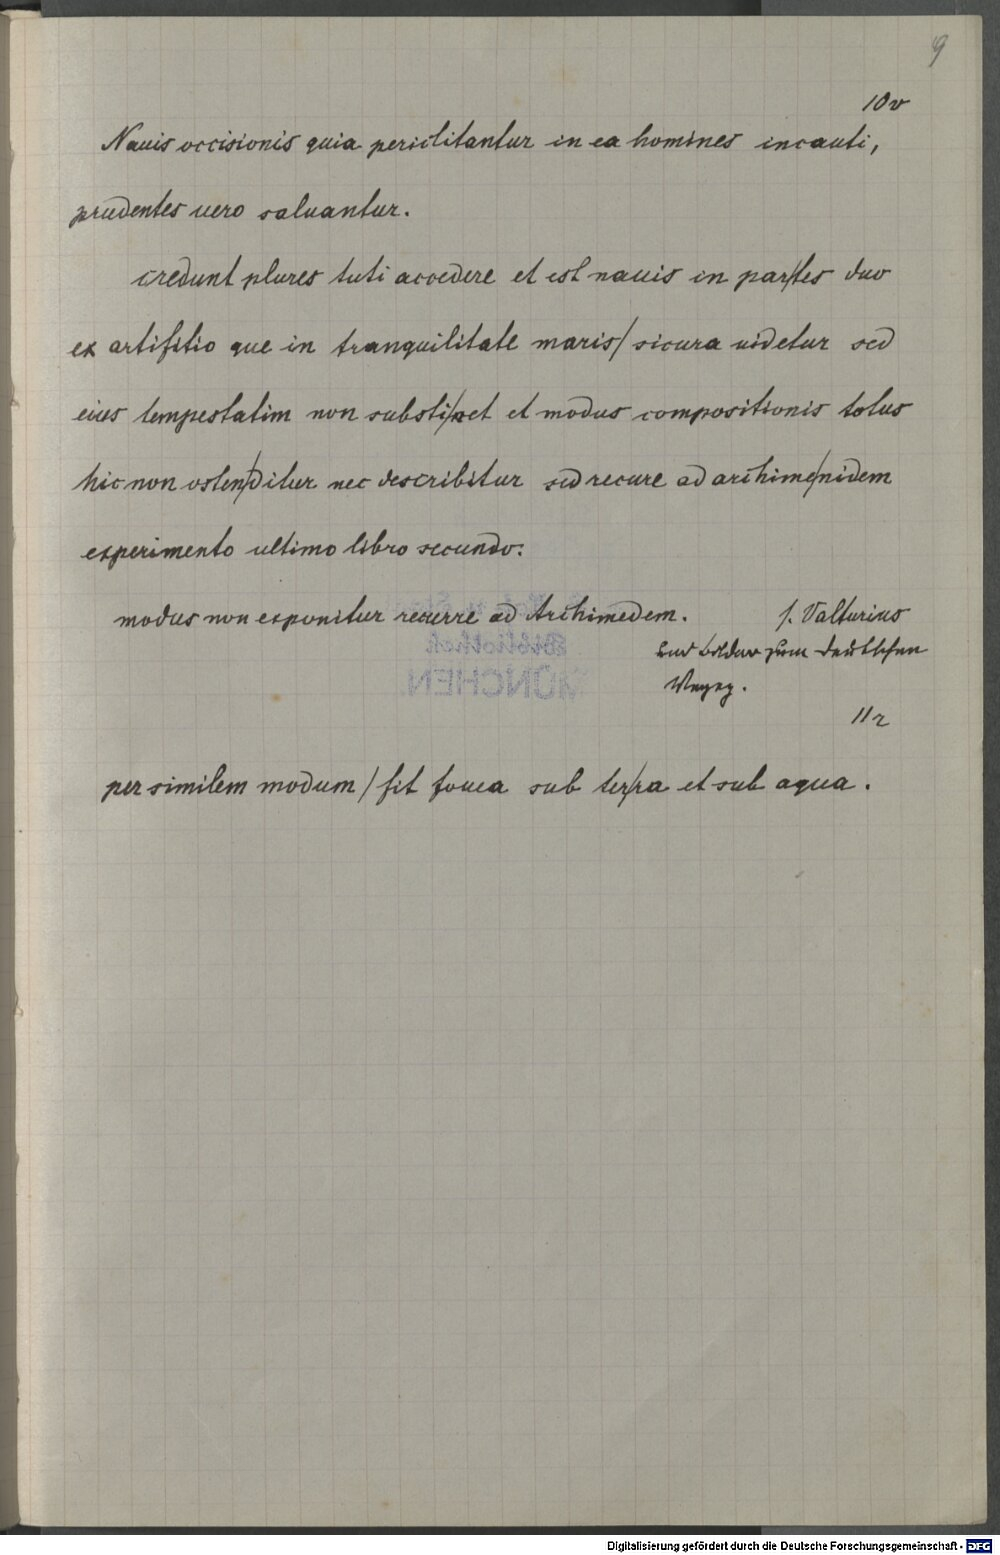 9
10v
Nauis occisionis quia periclitantur in ea homines incauti,
prudentes uero saluantur.
credunt plures tuti accedere et est nauis in par/tes duo
ex artifitio que in tranquilitate maris/ sicura uidetur sed
eius tempestatim non substi/net et modus compositionis totus
hic non osten/ditur nec describitur sed recure ad archime/nidem
experimento ultimo libro secundo.
modus non exponitur recurre ad Archimedem. s. Valturius
und Bilder zum deutschen
Vegez.
11r
per similem modum / fit fouea sub ter/ra et sub aqua.
Bibliothek
MÜNCHEN
Digitalisierung gefördert durch die Deutsche Forschungsgemeinschaft - DFG